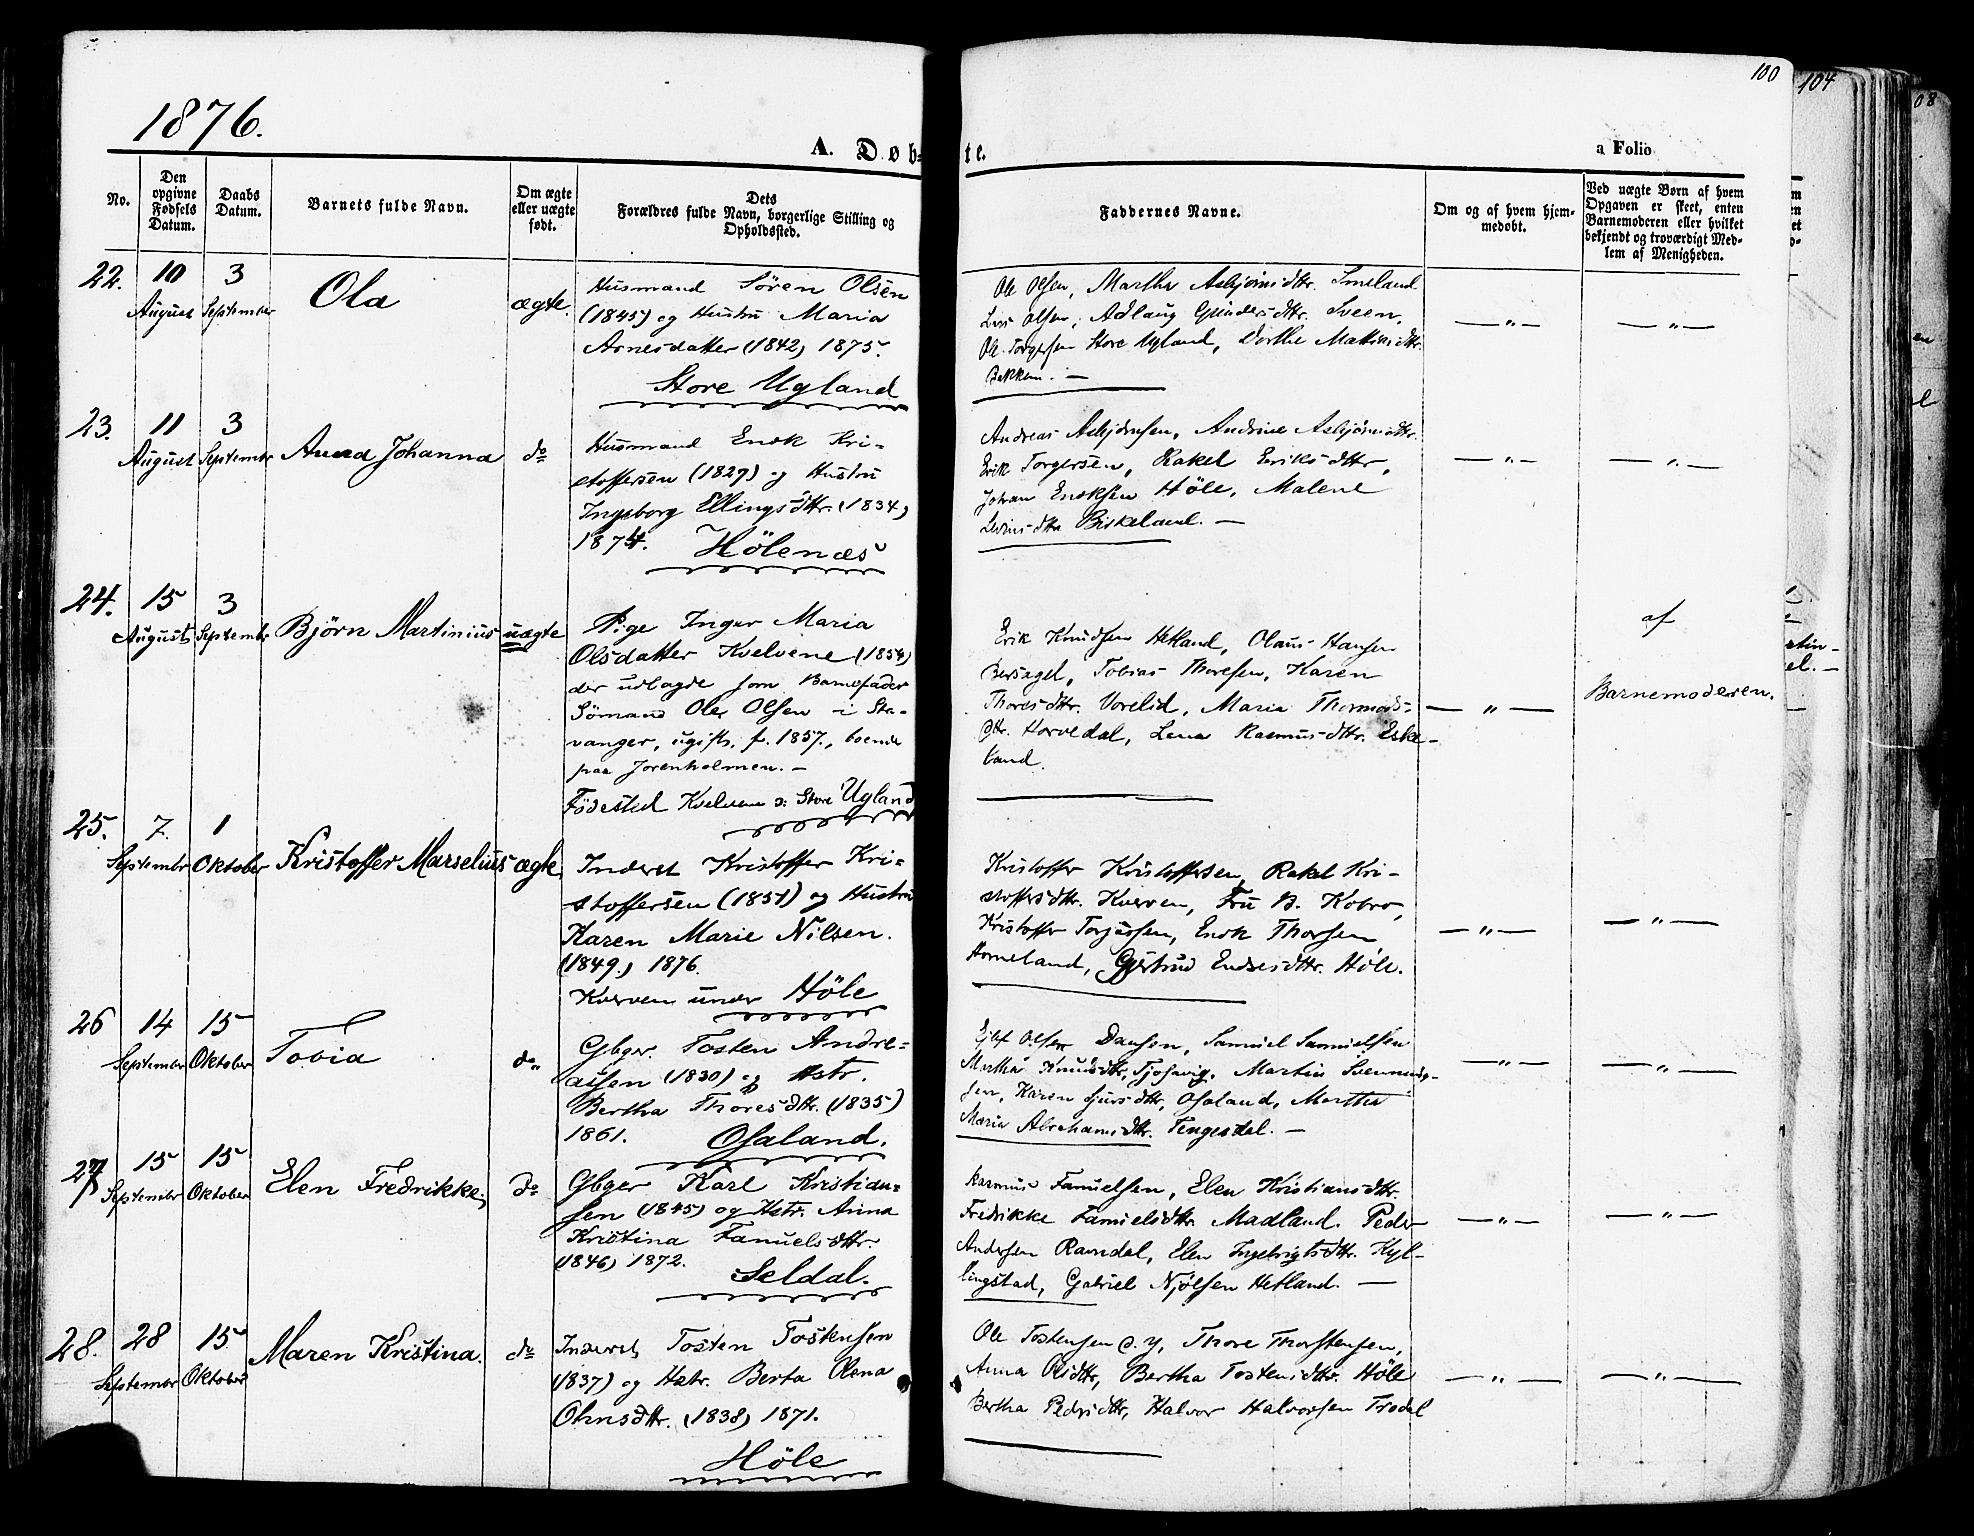 1876.
A. Døb-te.
a Folio
100
104
08
No.
Den opgivne Fødsels Datum.
Daabs Datum.
Barnets fulde Navn.
Om ægte eller uægte født.
Dets Forældres fulde Navn, borgerlige Stilling og Opholdssted.
Faddernes Navne.
Om og af hvem hjemmedøbt.
Ved uægte Børn af hvem Opgaven er skeet, enten Barnemoderen eller hvilket bekjendt og troværdigt Medlem af Menigheden.
22.
10 August
3 September
Ola
ægte.
Husmand Sören Olsen
(1845) og Hustru Maria
Arnesdatter (1842) 1875.
Store Ugland
Ole Olsen, Martha Asbjörnsdtr. Smeland
Olsen, Adlaug Gundersdtr. Sveen,
Ole Torgersen Store Ugland, Dorthe
Bakken. —
— " —
— " —
23.
11 August
3 Septembr
Anna Johanna
do
Husmand Enok Kri-
stoffersen (1829) og Hustru
Ingeborg Ellingsdtr. (1834)
1874.
Hölenæs
Andreas Asbjörnsen, Andrine Asbjörnsdtr.
Erik Torgersen, Rakel Eriksdtr,
Johan Enoksen Höle, Malene
Biskeland. —
— " —
— " —
24.
15 August
3 Septembr
Björn Martinius
uægte
Pige Inger Maria
Olsdatter Kvelvene (1854)
der udlagde som Barnefader
Sömand Ole Olsen i Sta-
vanger, ugift, f. 1857., boende
paa Jorenholmen. —
Födested Kvelvene Store Ugland
Erik Knudsen Hetland, Olaus Hansen
Bersagel, Tobias Thoresen, Karen
Thoresdtr. Vorelid, Maria Thormods-
dtr. Horvedal, Lena Rasmusdtr. Eske-
land.
— " —
af
Barnemoderen.
25.
7. Septembr
1 Oktober
Kristoffer Marselius
ægte
Inderst Kristoffer Kri-
stoffersen (1851) og Hustru
Karen Marie Nilsen.
(1849.) 1876.
Kverven under Höle
Kristoffer Kristoffersen, Rakel Kri-
stoffersdtr. Kverven, Fru B. Kobro,
Kristoffer Torjussen, Enok Thorsen,
Horneland, Gjertrud Endresdtr. Höle.
— " —
— " —
26
14 Septembr
15 Oktober
Tovia
do.
Gbger. Tosten Andre-
assen (1830) og Hstr.
Bertha Thoresdtr. (1835)
1861.
Osaland.
Ejlef Olsen Dansen, Samuel Samuelsen
Martha Knudsdtr, Tjosavig, Martin Svennung-
sen, Karen Sjursdtr, Osaland, Martha
Maria Abrahamsdtr. Tengesdal. —
— " —
— " —
27
15 Septembr
15 Oktober
Elen Fredrikke
do
Gbger Karl Kristian-
sen (1845) og Hstr. Anna
Kristina Famuelsdtr.
(1846) 1872.
Seldal.
Rasmus Famuelsen, Elen Kristiansdtr.
Fredrikke Famuelsdtr Madland. Peder
Andersen Ramdal, Elen Ingebrigtsdtr. Kyl-
lingstad, Gabriel Njölsen Hetland. —
— " —
— " —
28.
28 Septembr
15 Oktober
Maren Kristina.
do
Inderst Tosten Tostensen
(1837) og Hstr. Berta Olena
Ohnsdtr. (1838) 1871.
Höle
Ole Tostensen d. y, Thore Thorstensen,
Anna Olsdtr, Bertha Tostensdtr. Höle
Bertha Pedersdtr, Halvor Halvorsen Frodal
— " —
— " —